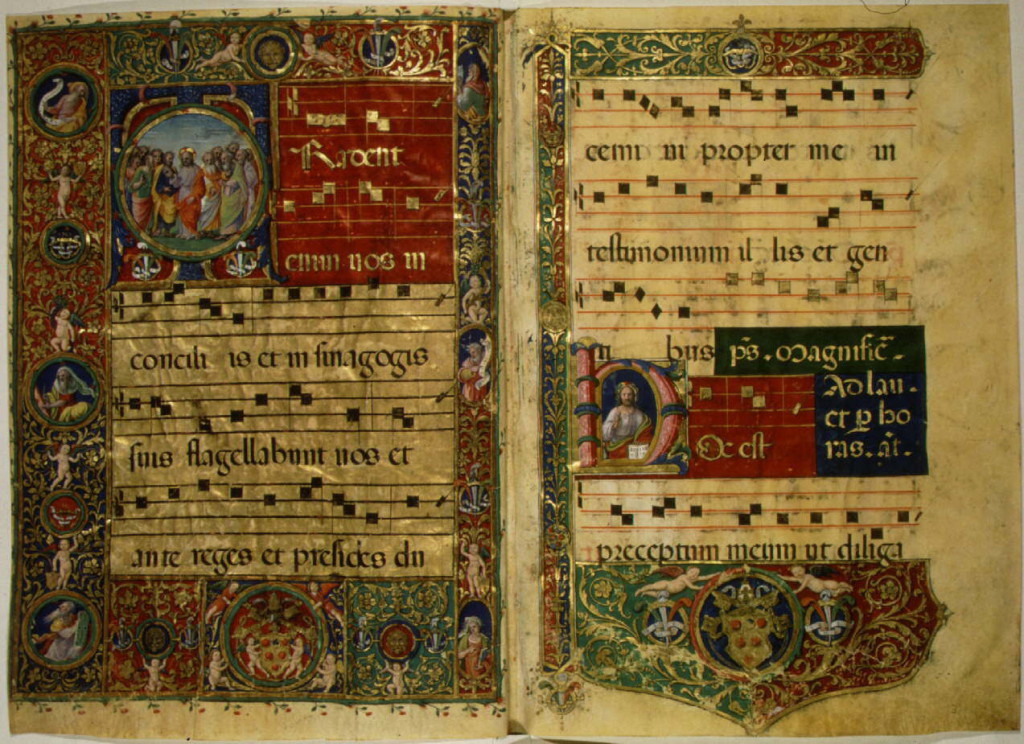 Tradent
enim uos in
concili is et in sinagogis
suis flagellabunt uos et
ante reges et presides du
cemi ni propter me in
testimonium il lis et gen
ti bus ps. Magnific̄.
Ad lau.
et p̱ ho
ras. añ.
Oc est
preceptum meum ut diliga